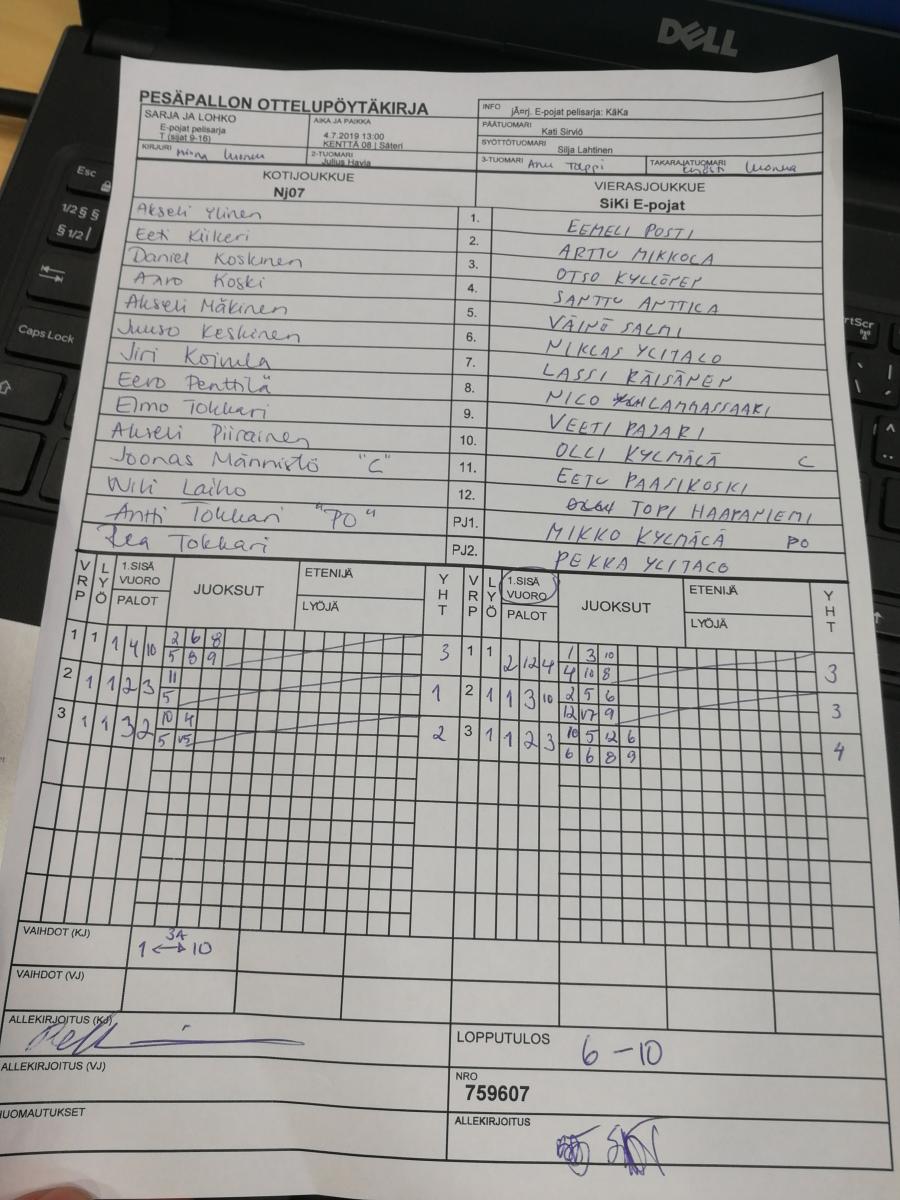 DELL
Esc
1/2 § §
§ 1/2 /
Caps Lock
PESÄPALLON OTTELUPÖYTÄKIRJA
SARJA JA LOHKO
E-pojat pelisarja
T (sijat 9-16)
AIKA JA PAIKKA
4.7.2019 13:00
KENTTÄ 08 | Säteri
KIRJURI
2-TUOMARI
Julius Havia
INFO jÃ¤rj. E-pojat pelisarja: KäKa
PÄÄTUOMARI
Kati Sirviö
SYÖTTÖTUOMARI
Silja Lahtinen
3-TUOMARI Anu Toppi
TAKARAJATUOMARI
KOTIJOUKKUE
Nj07
VIERASJOUKKUE
SiKi E-pojat
Akseli Ylinen 1. EEMELI POSTI
Eeti Kiikeri 2. ARTTU MIKKOLA
Daniel Koskinen 3. OTSO KYLLÖNEN
Aaro Koski 4. SANTTU ANTTILA
Akseli Mäkinen 5. VÄINÖ SALMI
Juuso Keskinen 6. NIKLAS YLITALO
Jiri Koivula 7. LASSI RÄISÄNEN
Eero Penttilä 8. NICO LAMMASSAARI
Elmo Tokkari 9. VEETI PAJARI
Akseli Piirainen 10. OLLI KYLMÄLÄ C
Joonas Männistö "C" 11. EETU PAASIKOSKI
Wili Laiho 12. TOPI HAAPANIEMI
Antti Tokkari "PO" PJ1. MIKKO KYLMÄLÄ PO
Rea Tokkari PJ2. PEKKA YLITALO
VRP LYÖ 1.SISÄ VUORO PALOT JUOKSUT ETENIJÄ LYÖJÄ YHT VRP LYÖ 1.SISÄ VUORO PALOT JUOKSUT ETENIJÄ LYÖJÄ YHT
1 1 1 4 10 2 6 8 3 1 1 2 12 4 1 3 10 3
5 8 9 4 10 8
2 1 1 2 3 11 1 2 1 1 3 10 2 5 6 3
5 12 V7 9
3 1 1 3 2 10 4 2 3 1 1 2 3 10 5 12 6 4
5 V5 6 6 8 9
VAIHDOT (KJ) 3A
1 ↔ 10
VAIHDOT (VJ)
ALLEKIRJOITUS (KJ)
LOPPUTULOS 6 - 10
ALLEKIRJOITUS (VJ)
NRO
759607
HUOMAUTUKSET
ALLEKIRJOITUS